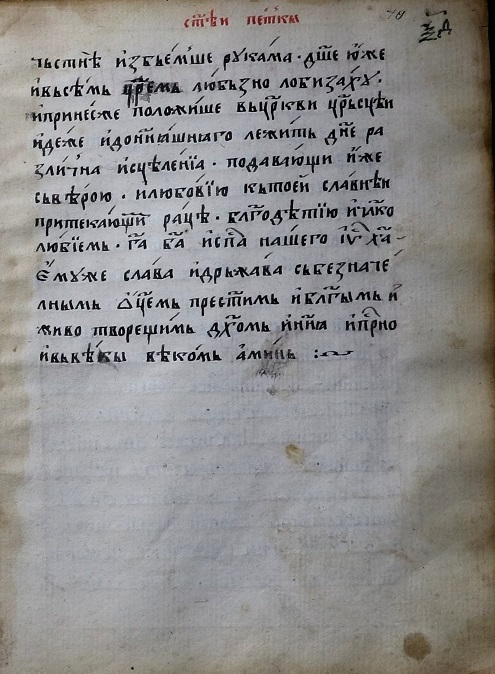 ст҃ѣи петкы
чьстнѣ изьбѥмше рукама · дш҃е ю҆же
и҆вьсѣмь срⷣцемь любьзно лобизаху ·
и҆принесже положише вьцр҃кви цр҃ьсцѣи
и҆деже и҆дон҃нꙗшнꙗго лежить дн҃е ра
злична исцѣленїа · подавающи и҆же
сьвѣрою · илюбовїю кьтоеи славнѣи
притекающїимь рацѣ · бл҃годѣтїю и҆чл҃ко
любїемь · га҃ ба҃ и҆сп҃а нашего і҆у҃ ха҃ ·
Ѥ҆муже слава и҆дрьжава сьбезначе
лнымь ѡ҆ц҃емь прест҃имь и҆бл҃гымь и҆
живо творещимь дх҃омь и҆нн҃ꙗ и҆прⷭ҇но
и҆вьвѣкы вѣкомь а҆минь :~